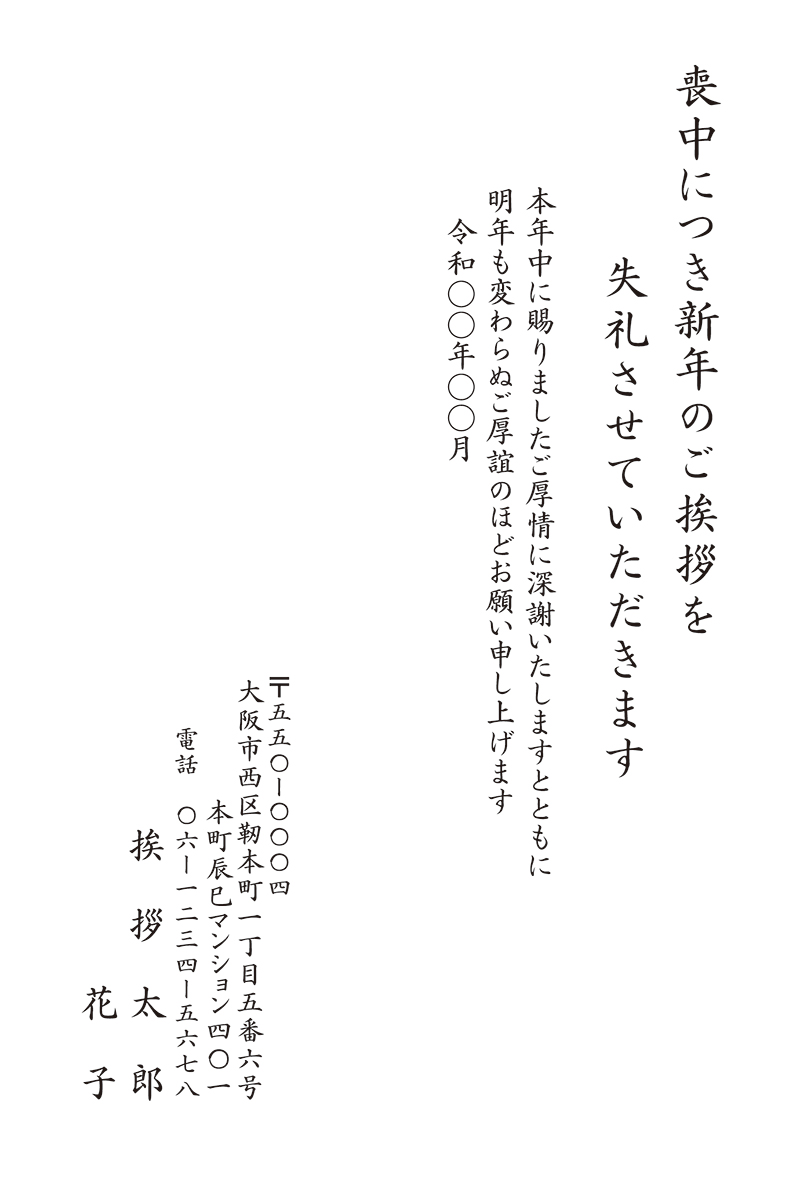 喪中につき新年のご挨拶を
失礼させていただきます
本年中に賜りましたご厚情に深謝いたしますとともに
明年も変わらぬご厚誼のほどお願い申し上げます
令和〇〇年〇〇月
〒五五〇ー〇〇〇四
大阪市西区靭本町一丁目五番六号
本町辰巳マンション四〇一
電話 〇六ー一二三四ー五六七八
挨拶 太郎
花子